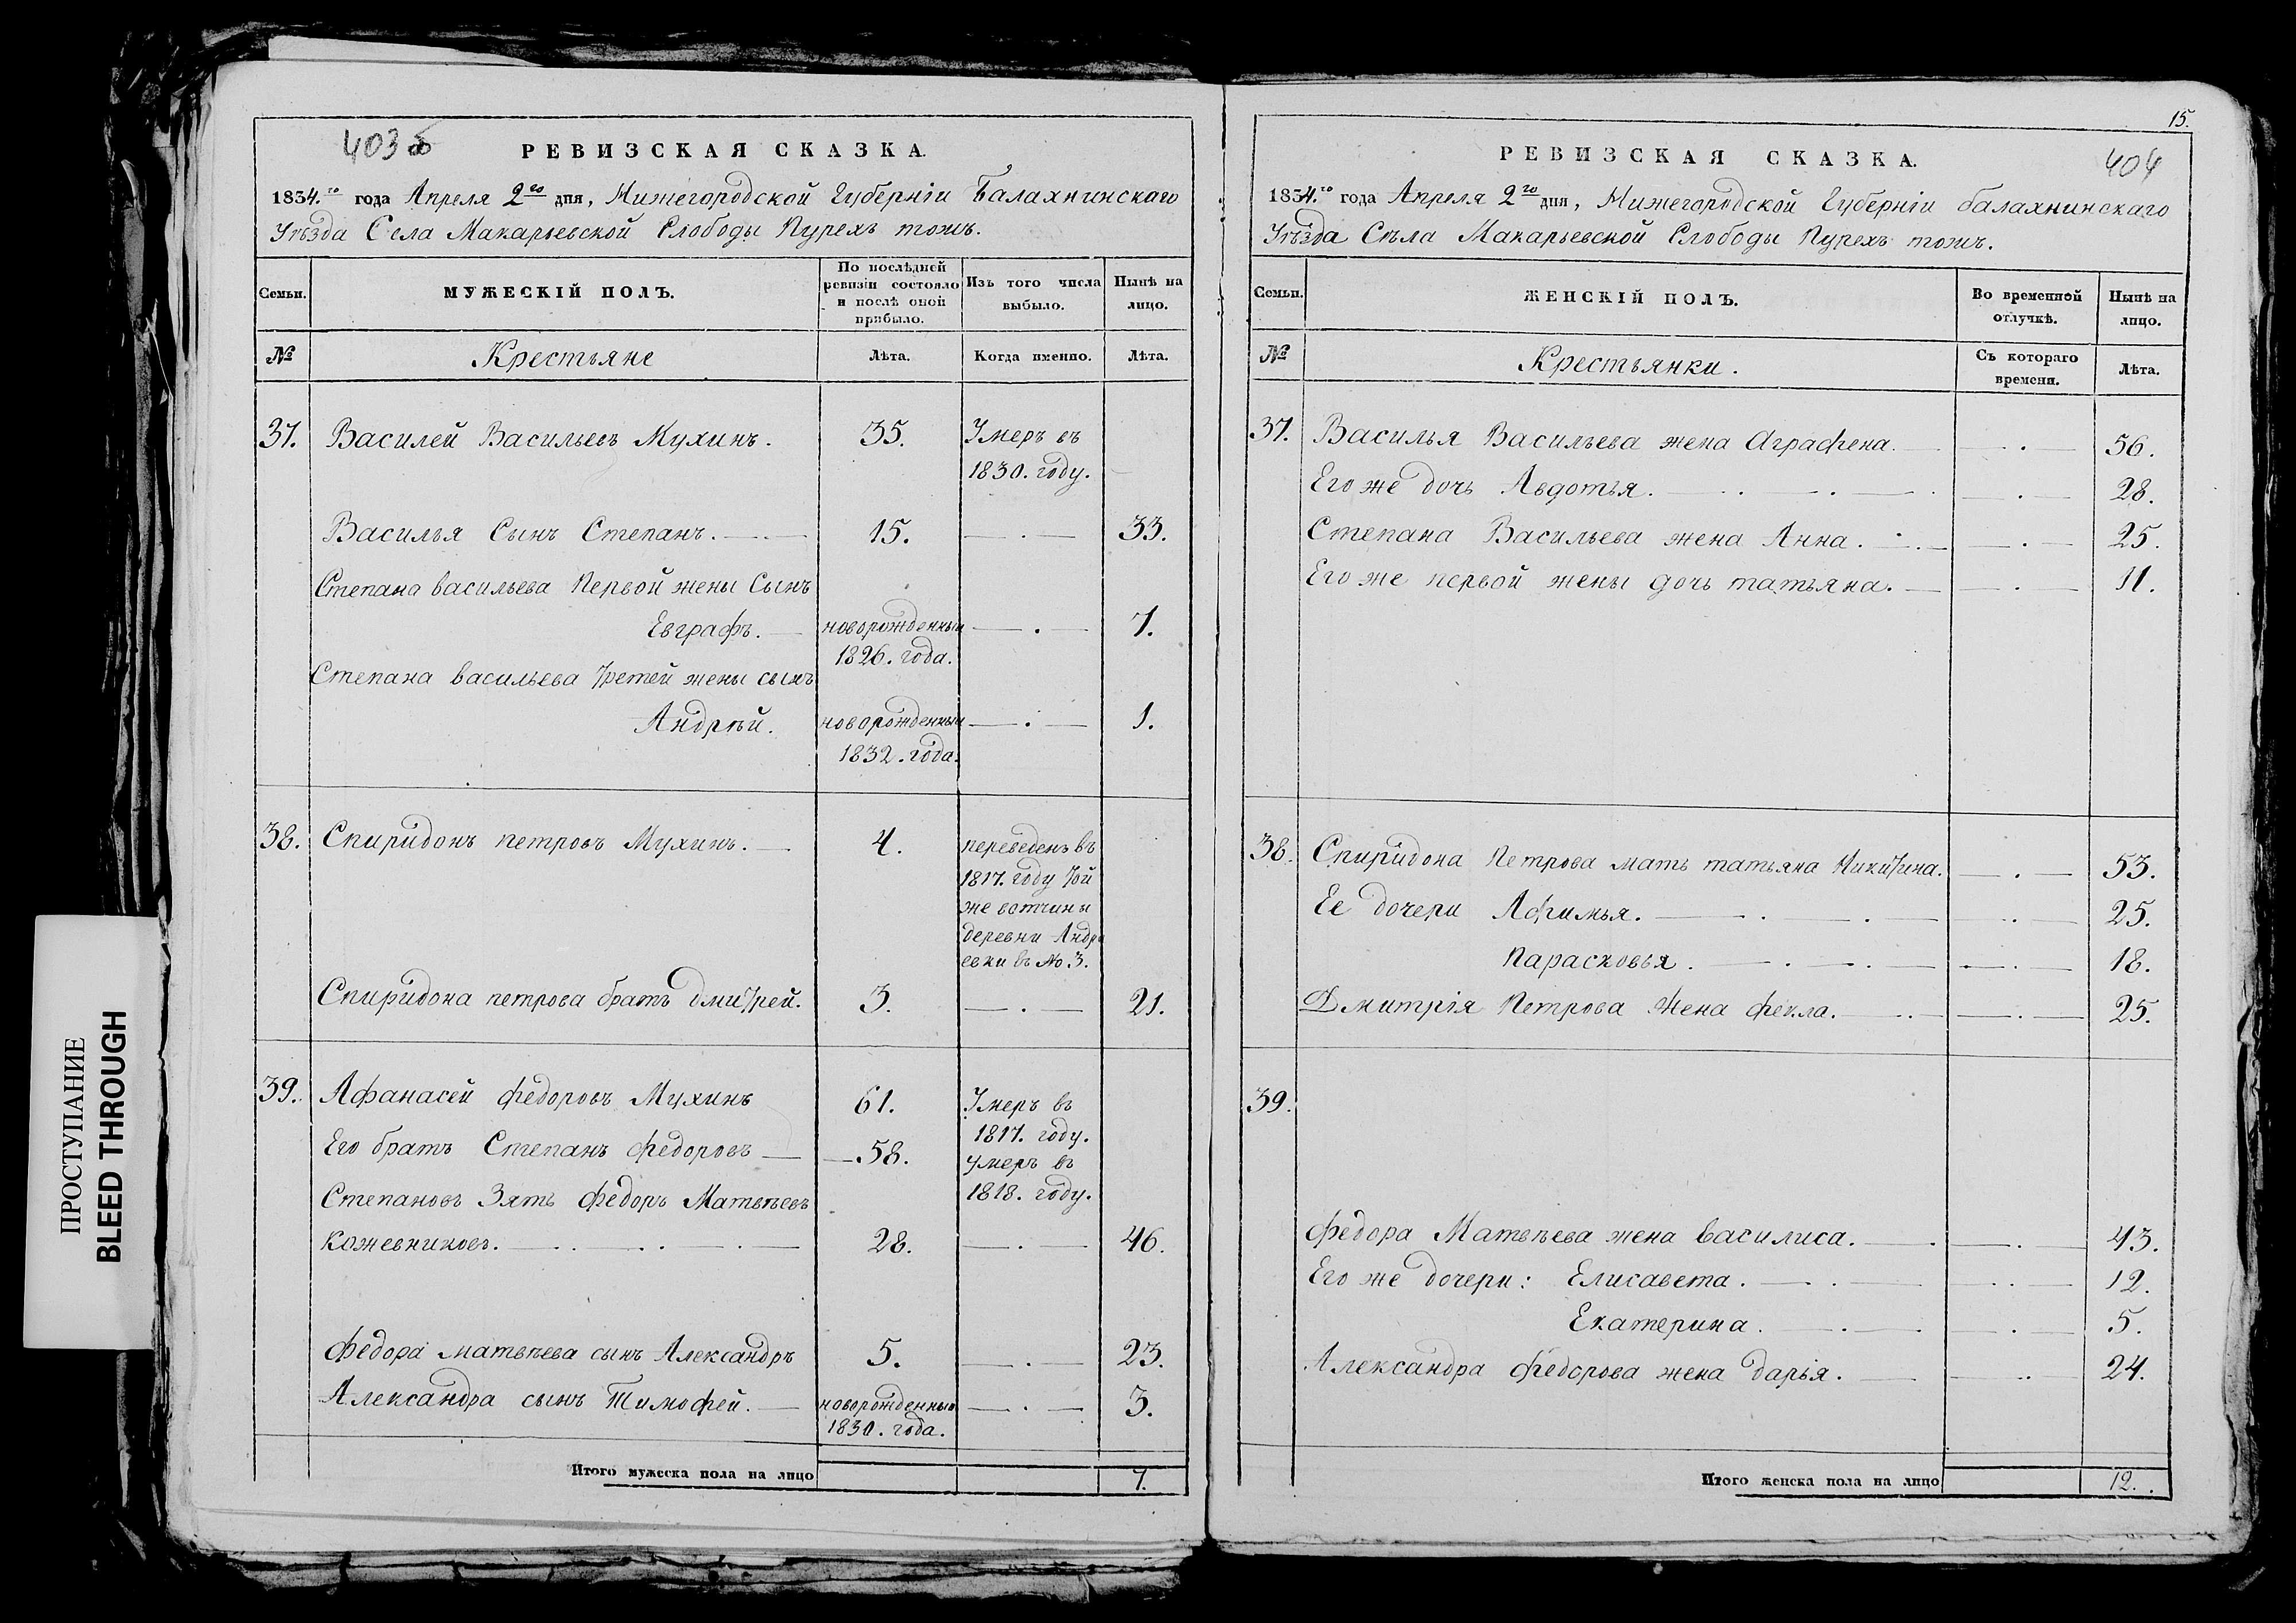 403б
РЕВИЗСКАЯ СКАЗКА.
1834.го года Апреля 2го дня, Нижегородской Губернiи Балахнинскаго
Уѣзда Села Макарьевской Слободы Пурехъ тожъ.
Семьи.
МУЖЕСКIЙ ПОЛЪ.
По послѣдней
ревизiи состояло
и послѣ оной
прибыло.
Изъ того числа
выбыло.
Нынѣ на
лицо.
№
Крестьяне
Лѣта.
Когда именно.
Лѣта.
37. Василей Васильевъ Мухинъ. 35. Умеръ въ
1830. году.
Василья Сынъ Степанъ. 15. 33.
Степана васильева Первой жены Сынъ
Евграфъ. новорожденный 7.
1826. года.
Степана васильева третей жены сынъ
Андрѣй. новорожденный 1.
1832. года.
38. Спиридонъ петровъ Мухинъ. 4. переведенъ въ
1817. году той
же вотчины
деревни Андре
евки въ No. 3.
Спиридона петрова братъ дмитрей. 3. 21.
39. Афанасей федоровъ Мухинъ 61. Умеръ въ
1817. году.
Его братъ Степанъ федоровъ 58. умеръ въ
1818. году.
Степановъ Зять федоръ Матвѣевъ
кожевниковъ. 28. 46.
федора матвѣева сынъ Александръ 5. 23.
Александра сынъ Тимофей. новорожденный 3.
1830. года.
Итого мужеска пола на лицо 7.
15.
404
РЕВИЗСКАЯ СКАЗКА.
1834.го года Апреля 2го дня, Нижегородской Губернiи балахнинскаго
Уѣзда Сѣла Макарьевской Слободы Пурехъ тожъ.
Семьи.
ЖЕНСКIЙ ПОЛЪ.
Во временной
отлучкѣ.
Нынѣ на
лицо.
№
Крестьянки.
Съ котораго
времени.
Лѣта.
37. Василья Васильева жена Аграфена. 56.
Его же дочь Авдотья. 28.
Степана Васильева жена Анна. 25.
Его же первой жены дочь татьяна. 11.
38. Спиридона Петрова мать татьяна Никитина. 53.
Ее дочери Афимья. 25.
Парасковья. 18.
Дмитрiя Петрова Жена фекла. 25.
39.
федора Матвѣева жена василиса. 43.
Его же дочери: Елисавета. 12.
Екатерина. 5.
Александра федорова жена дарья. 24.
Итого женска пола на лицо 12.
ПРОСТУПАНИЕ
BLEED THROUGH